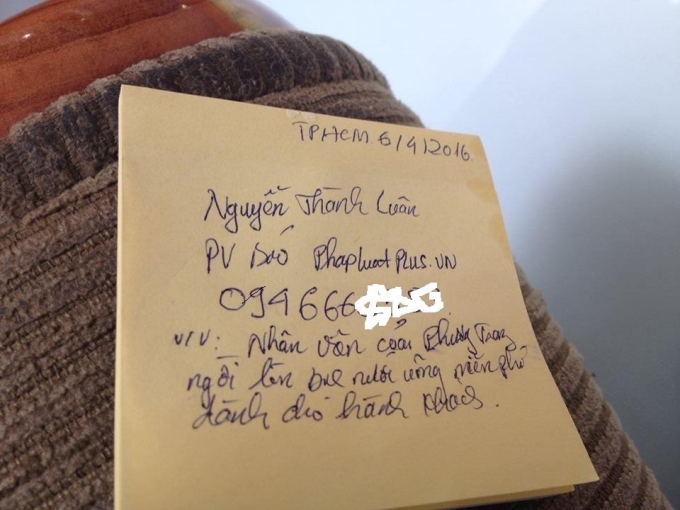 TPHCM 6/4/2016.
Nguyễn Thành Luân
PV báo Phapluatplus.vn
094666
V/V: Nhân viên của Phương Trang
ngồi lên bục nước uống miễn phí
dành cho hành khách.